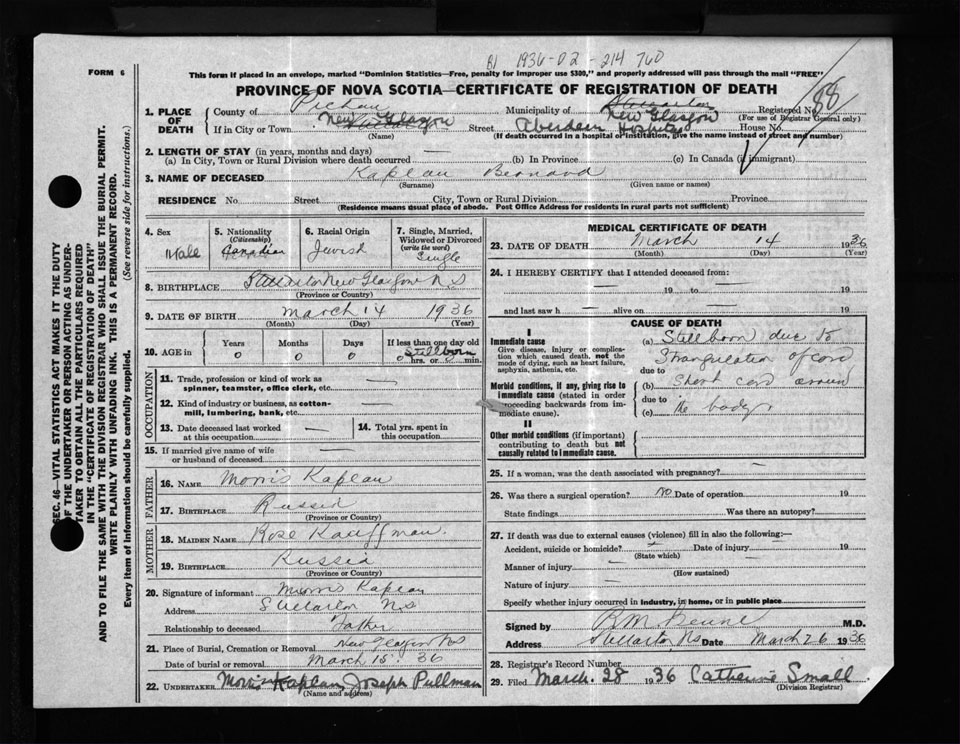 1936-02-214760
FORM 6
This form if placed in an envelope, marked "Dominion Statistics—Free, penalty for improper use $300," and properly addressed will pass through the mail "FREE"
PROVINCE OF NOVA SCOTIA—CERTIFICATE OF REGISTRATION OF DEATH
SEC. 46—VITAL STATISTICS ACT MAKES IT THE DUTY
OF THE UNDERTAKER OR PERSON ACTING AS UNDER-
TAKER TO OBTAIN ALL THE PARTICULARS REQUIRED
IN THE "CERTIFICATE OF REGISTRATION OF DEATH"
AND TO FILE THE SAME WITH THE DIVISION REGISTRAR WHO SHALL ISSUE THE BURIAL PERMIT.
WRITE PLAINLY WITH UNFADING INK. THIS IS A PERMANENT RECORD.
Every item of Information should be carefully supplied. (See reverse side for instructions.)
1. PLACE OF DEATH County of Pictou Municipality of Stellarton New Glasgow Registered No. 88
(For use of Registrar General only)
If in City or Town New Glasgow Stellarton Street Aberdeen Hospital House No.
(Name) (If death occurred in a hospital or institution, give the name instead of street and number)
2. LENGTH OF STAY (in years, months and days) —
(a) In City, Town or Rural Division where death occurred (b) In Province (c) In Canada (if immigrant)
3. NAME OF DECEASED Kaplan Bernard
(Surname) (Given name or names)
RESIDENCE No. Street City, Town or Rural Division Province
(Residence means usual place of abode. Post Office Address for residents in rural parts not sufficient)
4. Sex Male
5. Nationality (Citizenship) Canadian
6. Racial Origin Jewish
7. Single, Married, Widowed or Divorced (write the word) Single
8. BIRTHPLACE Stellarton New Glasgow N.S
(Province or Country)
9. DATE OF BIRTH March 14 1936
(Month) (Day) (Year)
10. AGE in Years 0 Months 0 Days 0 If less than one day old Stillborn 0 hrs. or 0 min.
OCCUPATION
11. Trade, profession or kind of work as spinner, teamster, office clerk, etc. —
12. Kind of industry or business, as cotton-mill, lumbering, bank, etc. —
13. Date deceased last worked at this occupation —
14. Total yrs. spent in this occupation —
15. If married give name of wife or husband of deceased —
FATHER
16. NAME Morris Kaplan
17. BIRTHPLACE Russia
(Province or Country)
MOTHER
18. MAIDEN NAME Rose Kauffman.
19. BIRTHPLACE Russia
(Province or Country)
20. Signature of informant Morris Kaplan
Address Stellarton N.S
Relationship to deceased Father
21. Place of Burial, Cremation or Removal New Glasgow NS
Date of burial or removal March 15. 36
22. UNDERTAKER Morris Kaplan, Joseph Pullman
(Name and address)
MEDICAL CERTIFICATE OF DEATH
23. DATE OF DEATH March 14 1936
(Month) (Day) (Year)
24. I HEREBY CERTIFY that I attended deceased from:
— 19 to — 19
and last saw h — alive on — 19
CAUSE OF DEATH
I
Immediate cause
Give disease, injury or complication which caused death, not the mode of dying, such as heart failure, asphyxia, asthenia, etc.
Morbid conditions, if any, giving rise to immediate cause (stated in order proceeding backwards from immediate cause).
II
Other morbid conditions (if important) contributing to death but not causally related to immediate cause.
(a) Stillborn due to
Strangulation of cord
due to
(b) Short cord around
due to
(c) the body
25. If a woman, was the death associated with pregnancy? —
26. Was there a surgical operation? no Date of operation 19
State findings Was there an autopsy?
27. If death was due to external causes (violence) fill in also the following:—
Accident, suicide or homicide? — Date of injury 19
(State which)
Manner of injury —
(How sustained)
Nature of injury —
Specify whether injury occurred in industry, in home, or in public place
Signed by M.D.
Address Stellarton NS Date March 26 1936
28. Registrar's Record Number
29. Filed March. 28 1936 Catherine Small
(Division Registrar)